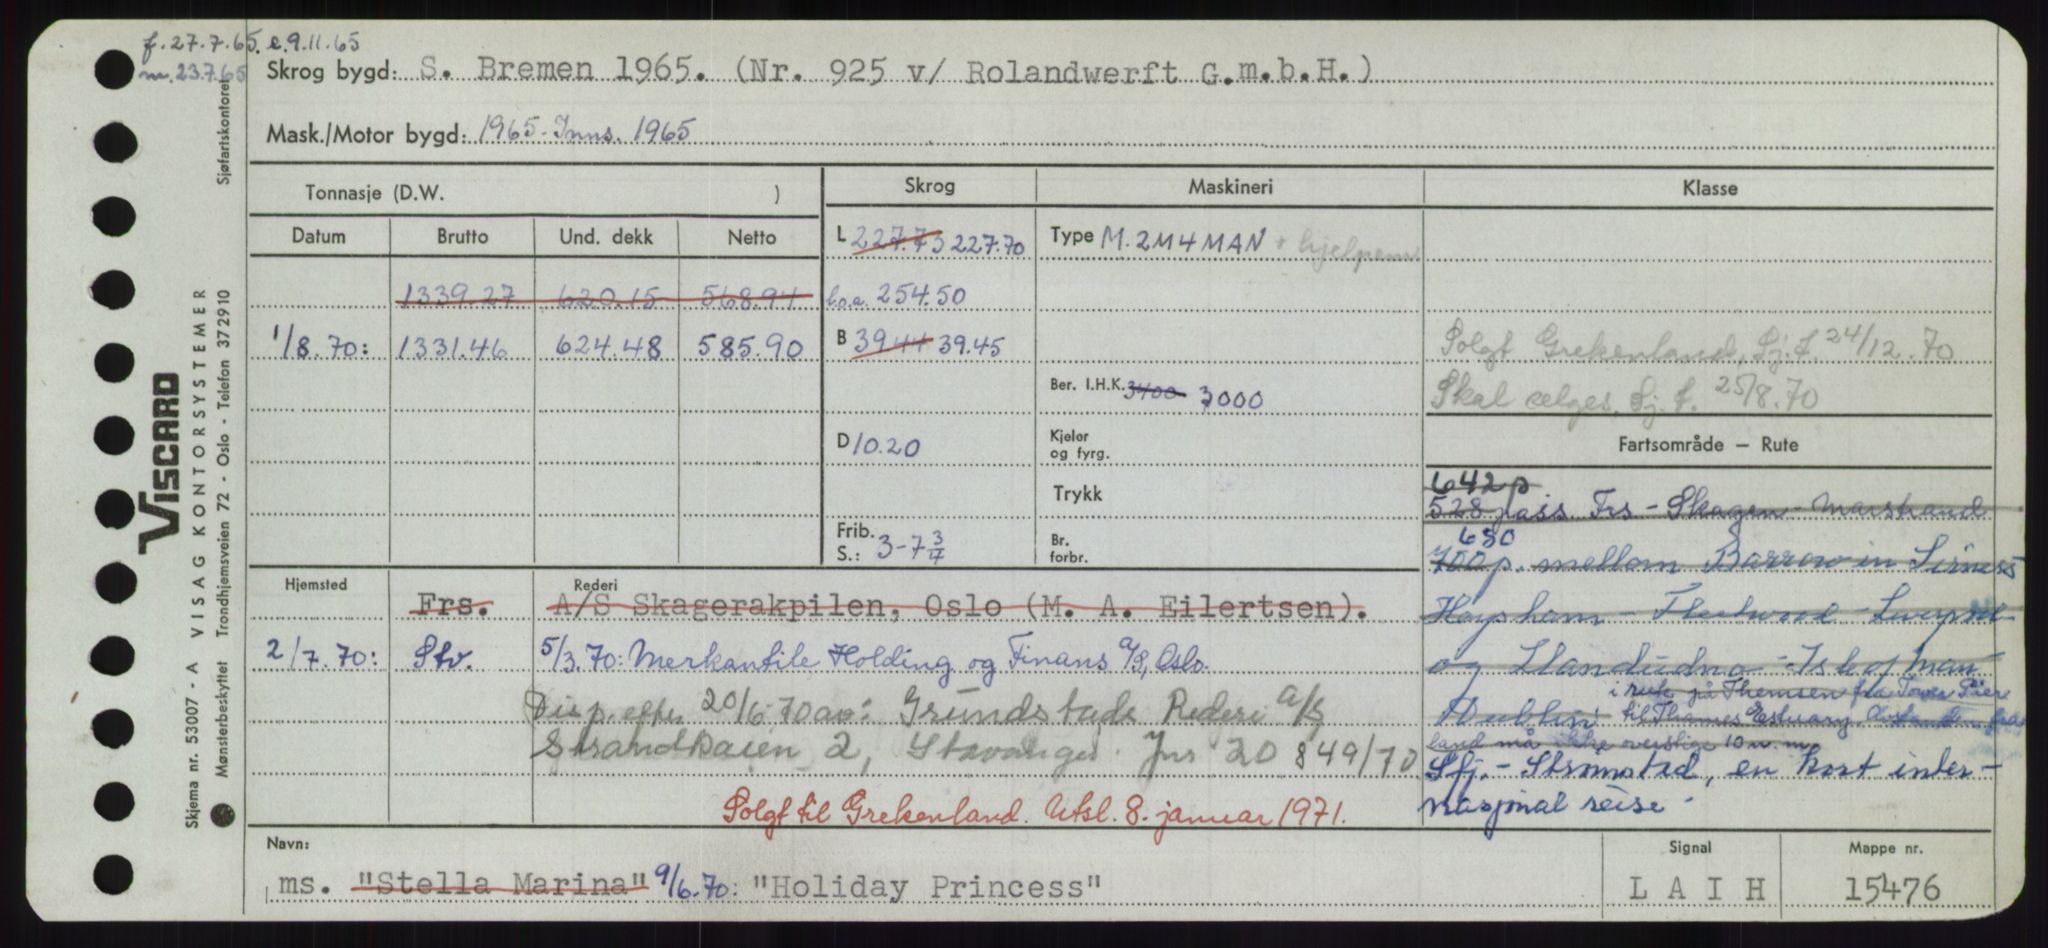 f. 27.7.65. e.9.11.65
m. 23.7.65
Skrog bygd: S. Bremen 1965. (Nr. 925 v/ Rolandwerft G.m.b.H.)
Mask./Motor bygd: 1965 - Inns. 1965
Tonnasje (D.W. )
Skrog
Maskineri
Klasse
Datum Brutto Und. dekk Netto
L 227.73 227.70
Type M. 2M4MAN + hjelpem
1339.27 620.15 568.94
l.o.a. 254.50
1/8.70: 1331.46 624.48 585.90
B 39.44 39.45
Solgt Grekenland, Sj.f. 24/12.70
Ber. I.H.K. 3400 3000
Skal selges. Sj.f. 25/8.70
D 10.20
Kjeler
og fyrg.
Fartsområde – Rute
642 p
Trykk
528 pass. Frs - Skagen - Marstrand
Frib.
S.: 3-7 3/4
Br.
forbr.
680
700 p. mellom Barrow in Firness
Hjemsted
Rederi
Frs. A/S Skagerakpilen, Oslo (M. A. Eilertsen).
Heysham - Fleetwood - Liverpool
2/7.70: Stv. 5/3.70: Merkantile Holding og Finans A/S, Oslo.
og Llandudno - Isle of Man
i rute på Themsen fra Tower Piere
Disp. efter 20/6 70 av: Grundstads Rederi A/S
Dublin til Thames Estuary. Avstanden fra
land må ikke overstige 10 n.m.
Strandkaien 2, Stavanger. Jnr 20 849/70
Sfj. - Strømstad, en kort inter-
nasjonal reise -
Solgt til Grekenland. Utsl. 8. januar 1971.
Navn:
Signal
Mappe nr.
ms. "Stella Marina" 9/6.70: "Holiday Princess"
L A I H
15476
Skjema nr. 53007 - A VISAG KONTORSYSTEMER
VISCARD
Mønsterbeskyttet Trondhjemsveien 72 - Oslo - Telefon 372910
Sjøfartskontoret